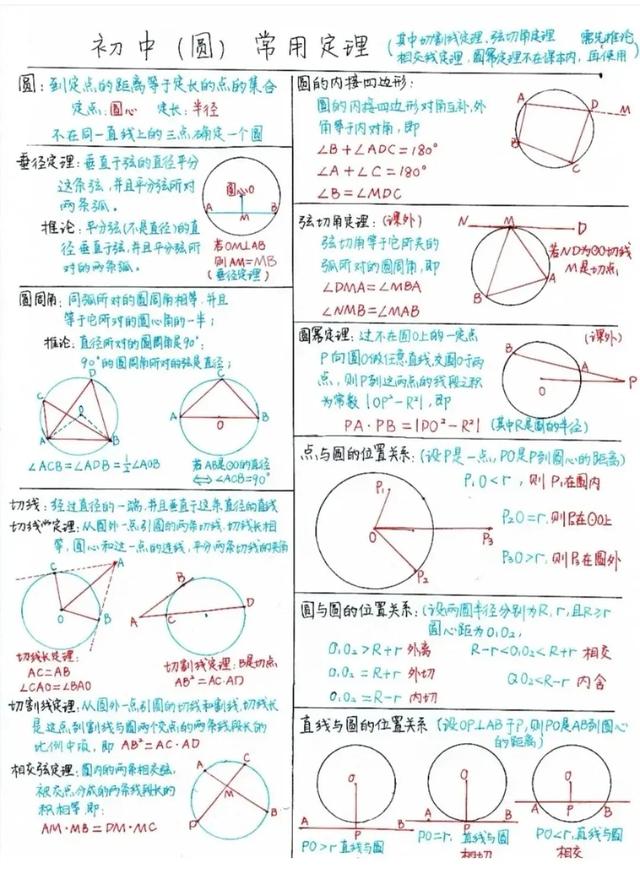 初中(圆)常用定理(其中切割线定理、弦切角定理 需先推论,
相交线定理、圆幂定理不在课本内,再使用)
圆:到定点的距离等于定长的点的集合
定点:圆心 定长:半径
不在同一直线上的三点确定一个圆
垂径定理:垂直于弦的直径平分
这条弦,并且平分弦所对
两条弧。
推论:平分弦(不是直径)的直
径垂直于弦,并且平分弦所
对的两条弧。
圆心O
A M B
若OM⊥AB
则AM=MB
(垂径定理)
圆周角:同弧所对的圆周角相等,并且
等于它所对的圆心角的一半;
推论:直径所对的圆周角是90°;
90°的圆周角所对的弦是直径;
D
C
O
A B
∠ACB=∠ADB=½∠AOB
C
A O B
若AB是⊙O的直径
⟺∠ACB=90°
切线:经过直径的一端,并且垂直于这条直径的直线
切线长定理:从圆外一点引圆的两条切线,切线长相
等,圆心和这一点的连线,平分两条切线的夹角
C A
O B
切线长定理:
AC=AB
∠CAO=∠BAO
B
A C D
切割线定理:B是切点
AB²=AC·AD
切割线定理:从圆外一点引圆的切线和割线,切线长
是这点到割线与圆两个交点的两条线段长的
比例中项,即 AB²=AC·AD
相交弦定理:圆内的两条相交弦,
被交点分成的两条线段长的
积相等,即:
AM·MB=DM·MC
A C
M
D B
圆的内接四边形:
圆的内接四边形对角互补,外
角等于内对角,即
∠B+∠ADC=180°
∠A+∠C=180°
∠B=∠MDC
A D M
B C
弦切角定理:(课外)
弦切角等于它所夹的
弧所对的圆周角,即
∠DMA=∠MBA
∠NMB=∠MAB
N M D
A
B
若ND为⊙O切线
M是切点
圆幂定理:过不在圆O上的一定点 (课外)
P向圆O做任意直线交圆O于两
点,则P到这两点的线段之积
为常数 |OP²-R²|,即
PA·PB=|PO²-R²| (其中R是圆的半径)
B
A
O P
点与圆的位置关系:(设P是一点,PO是P到圆心的距离)
P₁O<r,则P₁在圆内
P₂O=r,则P₂在⊙O上
P₃O>r,则P₃在圆外
P₁
O P₃
P₂
圆与圆的位置关系:(设两圆半径分别为R,r,且R≥r
圆心距为O₁O₂,
O₁O₂>R+r 外离 R-r<O₁O₂<R+r 相交
O₁O₂=R+r 外切 O₁O₂<R-r 内含
O₁O₂=R-r 内切
直线与圆的位置关系(设OP⊥AB于P,则PO是AB到圆心
的距离)
O O O
A P B A P B A P B
PO>r 直线与圆
PO=r,直线与圆
相切
PO<r,直线与圆
相交